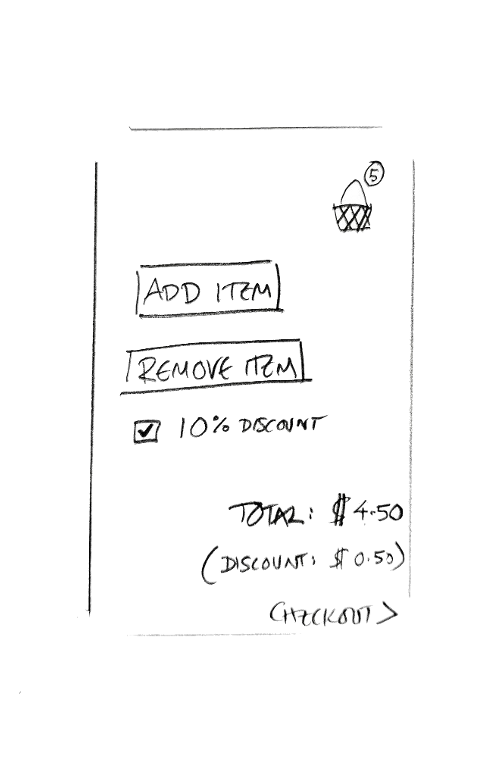 5
ADD ITEM
REMOVE ITEM
10% DISCOUNT
TOTAL: $4.50
(DISCOUNT: $0.50)
CHECKOUT >